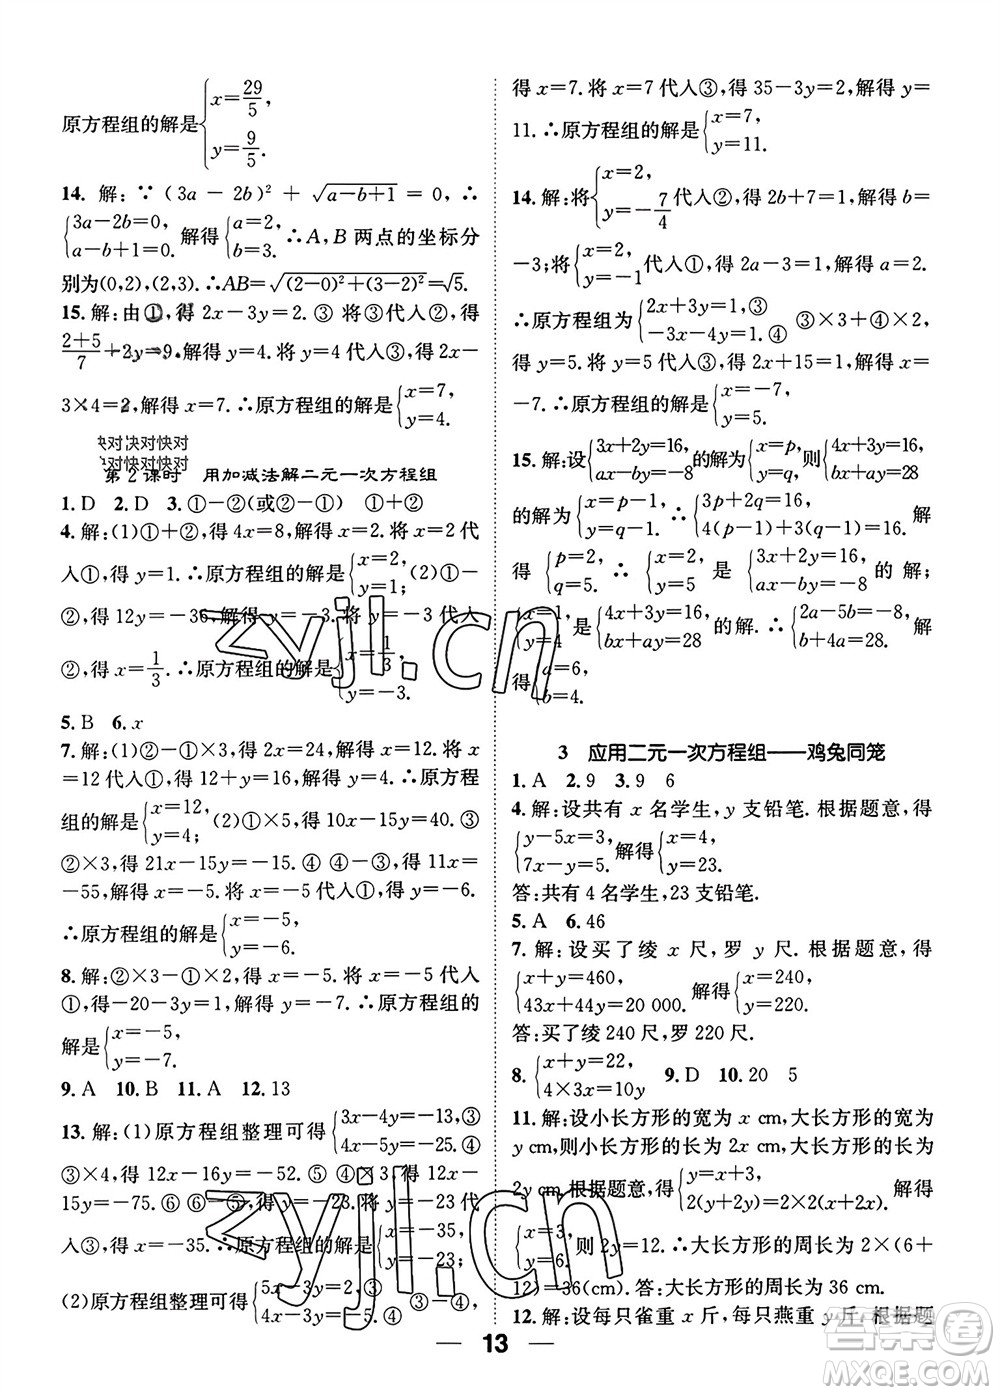 原方程组的解是{x=29/5, y=9/5.
14. 解：∵(3a-2b)²+√(a-b+1)=0, ∴
{3a-2b=0, a-b+1=0. 解得{a=2, b=3. ∴A,B两点的坐标分
别为(0,2),(2,3). ∴AB=√((2-0)²+(3-2)²)=√5.
15. 解：由①,得 2x-3y=2. ③ 将③代入②,得
(2+5)/7+2y=9.解得 y=4. 将 y=4 代入③,得 2x-
3×4=2,解得 x=7. ∴原方程组的解是{x=7, y=4.
快对快对快对
快对快对快对
第2课时 用加减法解二元一次方程组
1. D 2. D 3. ①-②(或②-①) ①+②
4. 解：(1)①+②,得 4x=8,解得 x=2. 将 x=2 代
入①,得 y=1. ∴原方程组的解是{x=2, y=1; (2)①-
②,得 12y=-36,解得 y=-3. 将 y=-3 代入
②,得 x=1/3. ∴原方程组的解是{x=1/3, y=-3.
5. B 6. x
7. 解：(1)②-①×3,得 2x=24,解得 x=12. 将 x
=12 代入①,得 12+y=16,解得 y=4. ∴原方程
组的解是{x=12, y=4; (2)①×5,得 10x-15y=40. ③
②×3,得 21x-15y=-15. ④ ④-③,得 11x=
-55,解得 x=-5. 将 x=-5 代入①,得 y=-6.
∴原方程组的解是{x=-5, y=-6.
8. 解：②×3-①×2,得 x=-5. 将 x=-5 代入
①,得-20-3y=1. 解得 y=-7. ∴原方程组的
解是{x=-5, y=-7.
9. A 10. B 11. A 12. 13
13. 解：(1)原方程组整理可得{3x-4y=-13,③ 4x-5y=-25.④
③×4,得 12x-16y=-52. ⑤ ④×3,得 12x-
15y=-75. ⑥ ⑥-⑤,得 y=-23. 将 y=-23 代
入③,得 x=-35. ∴原方程组的解是{x=-35, y=-23.
(2)原方程组整理可得{5x-3y=2,③ 4x-3y=-5.④
得 x=7. 将 x=7 代入③,得 35-3y=2,解得 y=
11. ∴原方程组的解是{x=7, y=11.
14. 解：将{x=2, y=-7/4 代入②,得 2b+7=1,解得 b=
-3;将{x=-2, y=-1 代入①,得 2a-3=1,解得 a=2.
∴原方程组为{2x+3y=1,③ -3x-4y=1.④ ③×3+④×2,得
得 y=5. 将 y=5 代入③,得 2x+15=1,解得 x=
-7. ∴原方程组的解是{x=-7, y=5.
15. 解：设{3x+2y=16, ax-by=-8 的解为{x=p, y=q, 则{4x+3y=16, ax+by=28
的解为{x=p-1, y=q-1. ∴{3p+2q=16, 4(p-1)+3(q-1)=16. 解
得{p=2, q=5. ∴{x=2, y=5 是{3x+2y=16, ax-by=-8 的解；
{x=1, y=4 是{4x+3y=16, bx+ay=28 的解. ∴{2a-5b=-8, b+4a=28. 解
得{a=6, b=4.
3 应用二元一次方程组——鸡兔同笼
1. A 2. 9 3. 9 6
4. 解：设共有 x 名学生, y 支铅笔. 根据题意,得
{y-5x=3, 7x-y=5. 解得{x=4, y=23.
答：共有 4 名学生,23 支铅笔.
5. A 6. 46
7. 解：设买了绫 x 尺,罗 y 尺. 根据题意,得
{x+y=460, 43x+44y=20 000. 解得{x=240, y=220.
答：买了绫 240 尺,罗 220 尺.
8. {x+y=22, 4×3x=10y 9. D 10. 20 5
11. 解：设小长方形的宽为 x cm,大长方形的宽为
y cm,则小长方形的长为 2x cm,大长方形的长为
2y cm,根据题意,得{y=x+3, 2(y+2y)=2×2(x+2x). 解得
{x=3, y=6. 则 2y=12. ∴大长方形的周长为 2×(6+
12)=36(cm). 答：大长方形的周长为 36 cm.
12. 解：设每只雀重 x 斤,每只燕重 y 斤. 根据题
13
zyjl.cn
zyjl.cn
答案圈
MXQE.COM